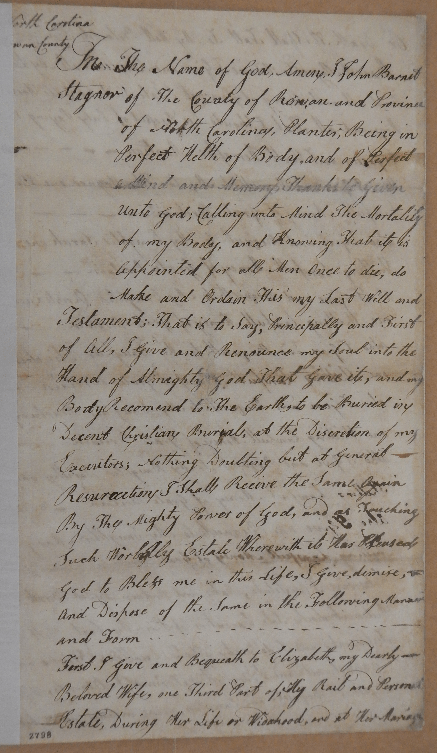 orth Carolina
owan County
In The Name of God, Amen, I John Barnet
Stagnor of The County of Rowan and Province
of North Carolina, Planter, Being in
Perfect Helth of Body, and of Perfect
Mind and Memory, Thanks to Given
unto God; Calling unto Mind The Mortality
of my Body, and Knowing That it is
Appointed for all Men once to die, do
Make and Ordain This my Last Will and
Testament; That is to Say, Principally and First
of All, I Give and Renounce my Soul into the
Hand of Almighty God That Gave it, and my
Body Recomend to The Earth, to be Buried in
Decent Christian Burial, at the Discretion of my
Executors; Nothing Doubting but at General
Resurection, I Shall Receive the Same Again
By The Mighty Power of God, and as Touching
Such Worldly Estate Wherewith it Has Pleased
God to Bless me in this Life, I Give, demise,
and Dispose of the Same in the Following Manner
and Form
First I Give and Bequeath to Elizabeth, my Dearly
Beloved Wife, one Third Part of My Rail and Personal
Estate, During Her Life or Widdhood, and at Her Mariag
2798